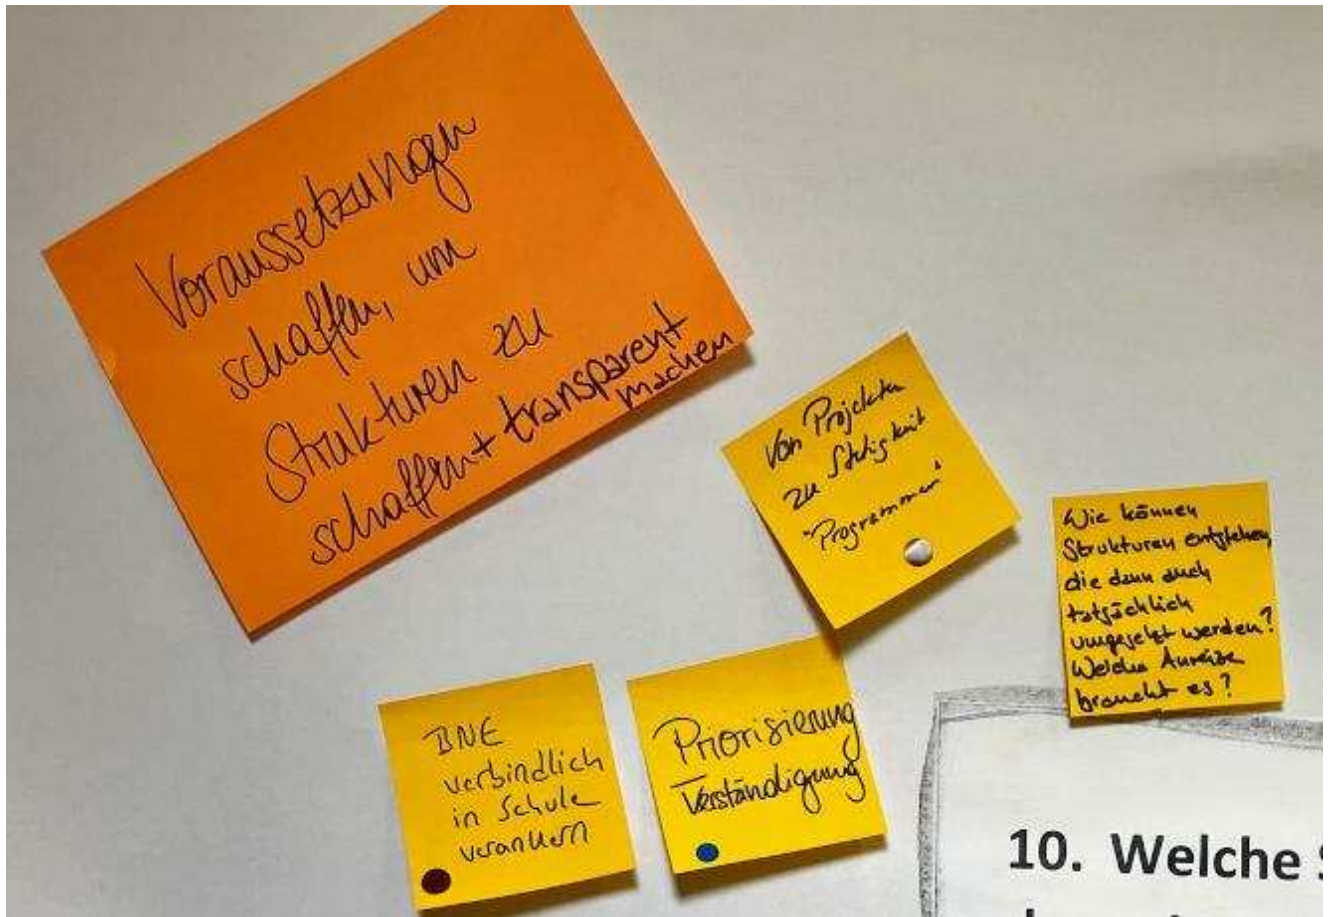 Voraussetzungen
schaffen, um
Strukturen zu
schaffen + transparent
machen
Von Projekten
zu Stetigkeit
"Programmen"
Wie können
Strukturen entstehen,
die dann auch
tatsächlich
umgesetzt werden?
Welche Anreize
braucht es?
BNE
verbindlich
in Schule
verankern
Priorisierung
Verständigung
10. Welche